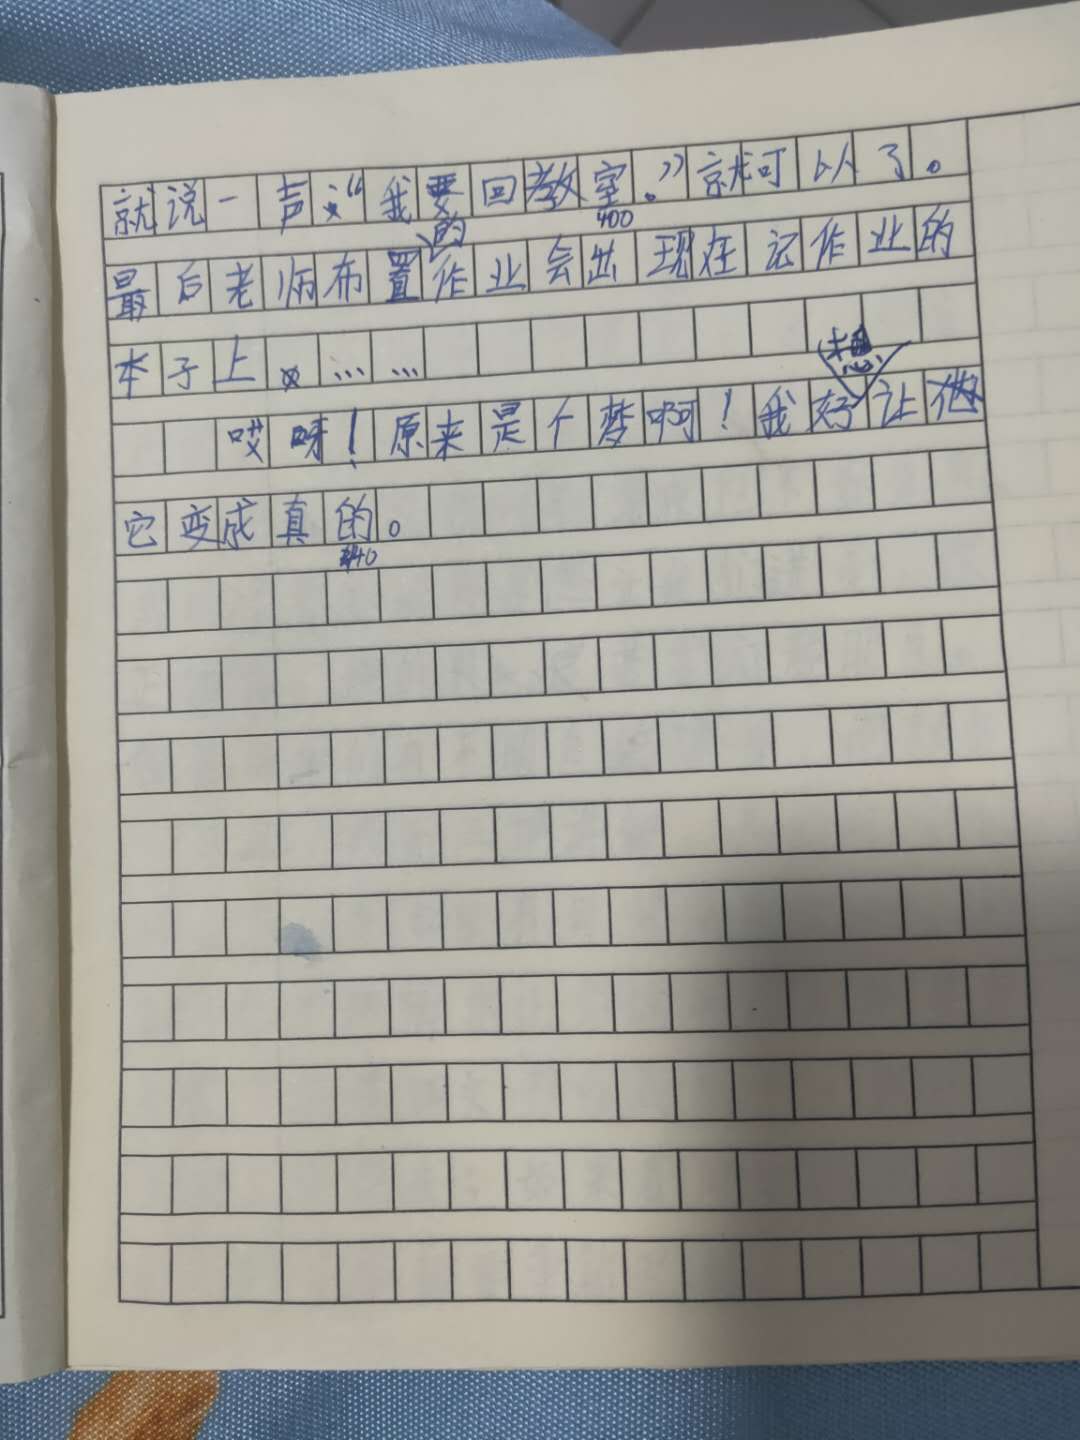 就说一声:“我要回教室。”就可以了。
400
最后老师布置的作业会出现在记作业的
本子上……
哎呀!原来是个梦啊!我好想让
它变成真的。
440